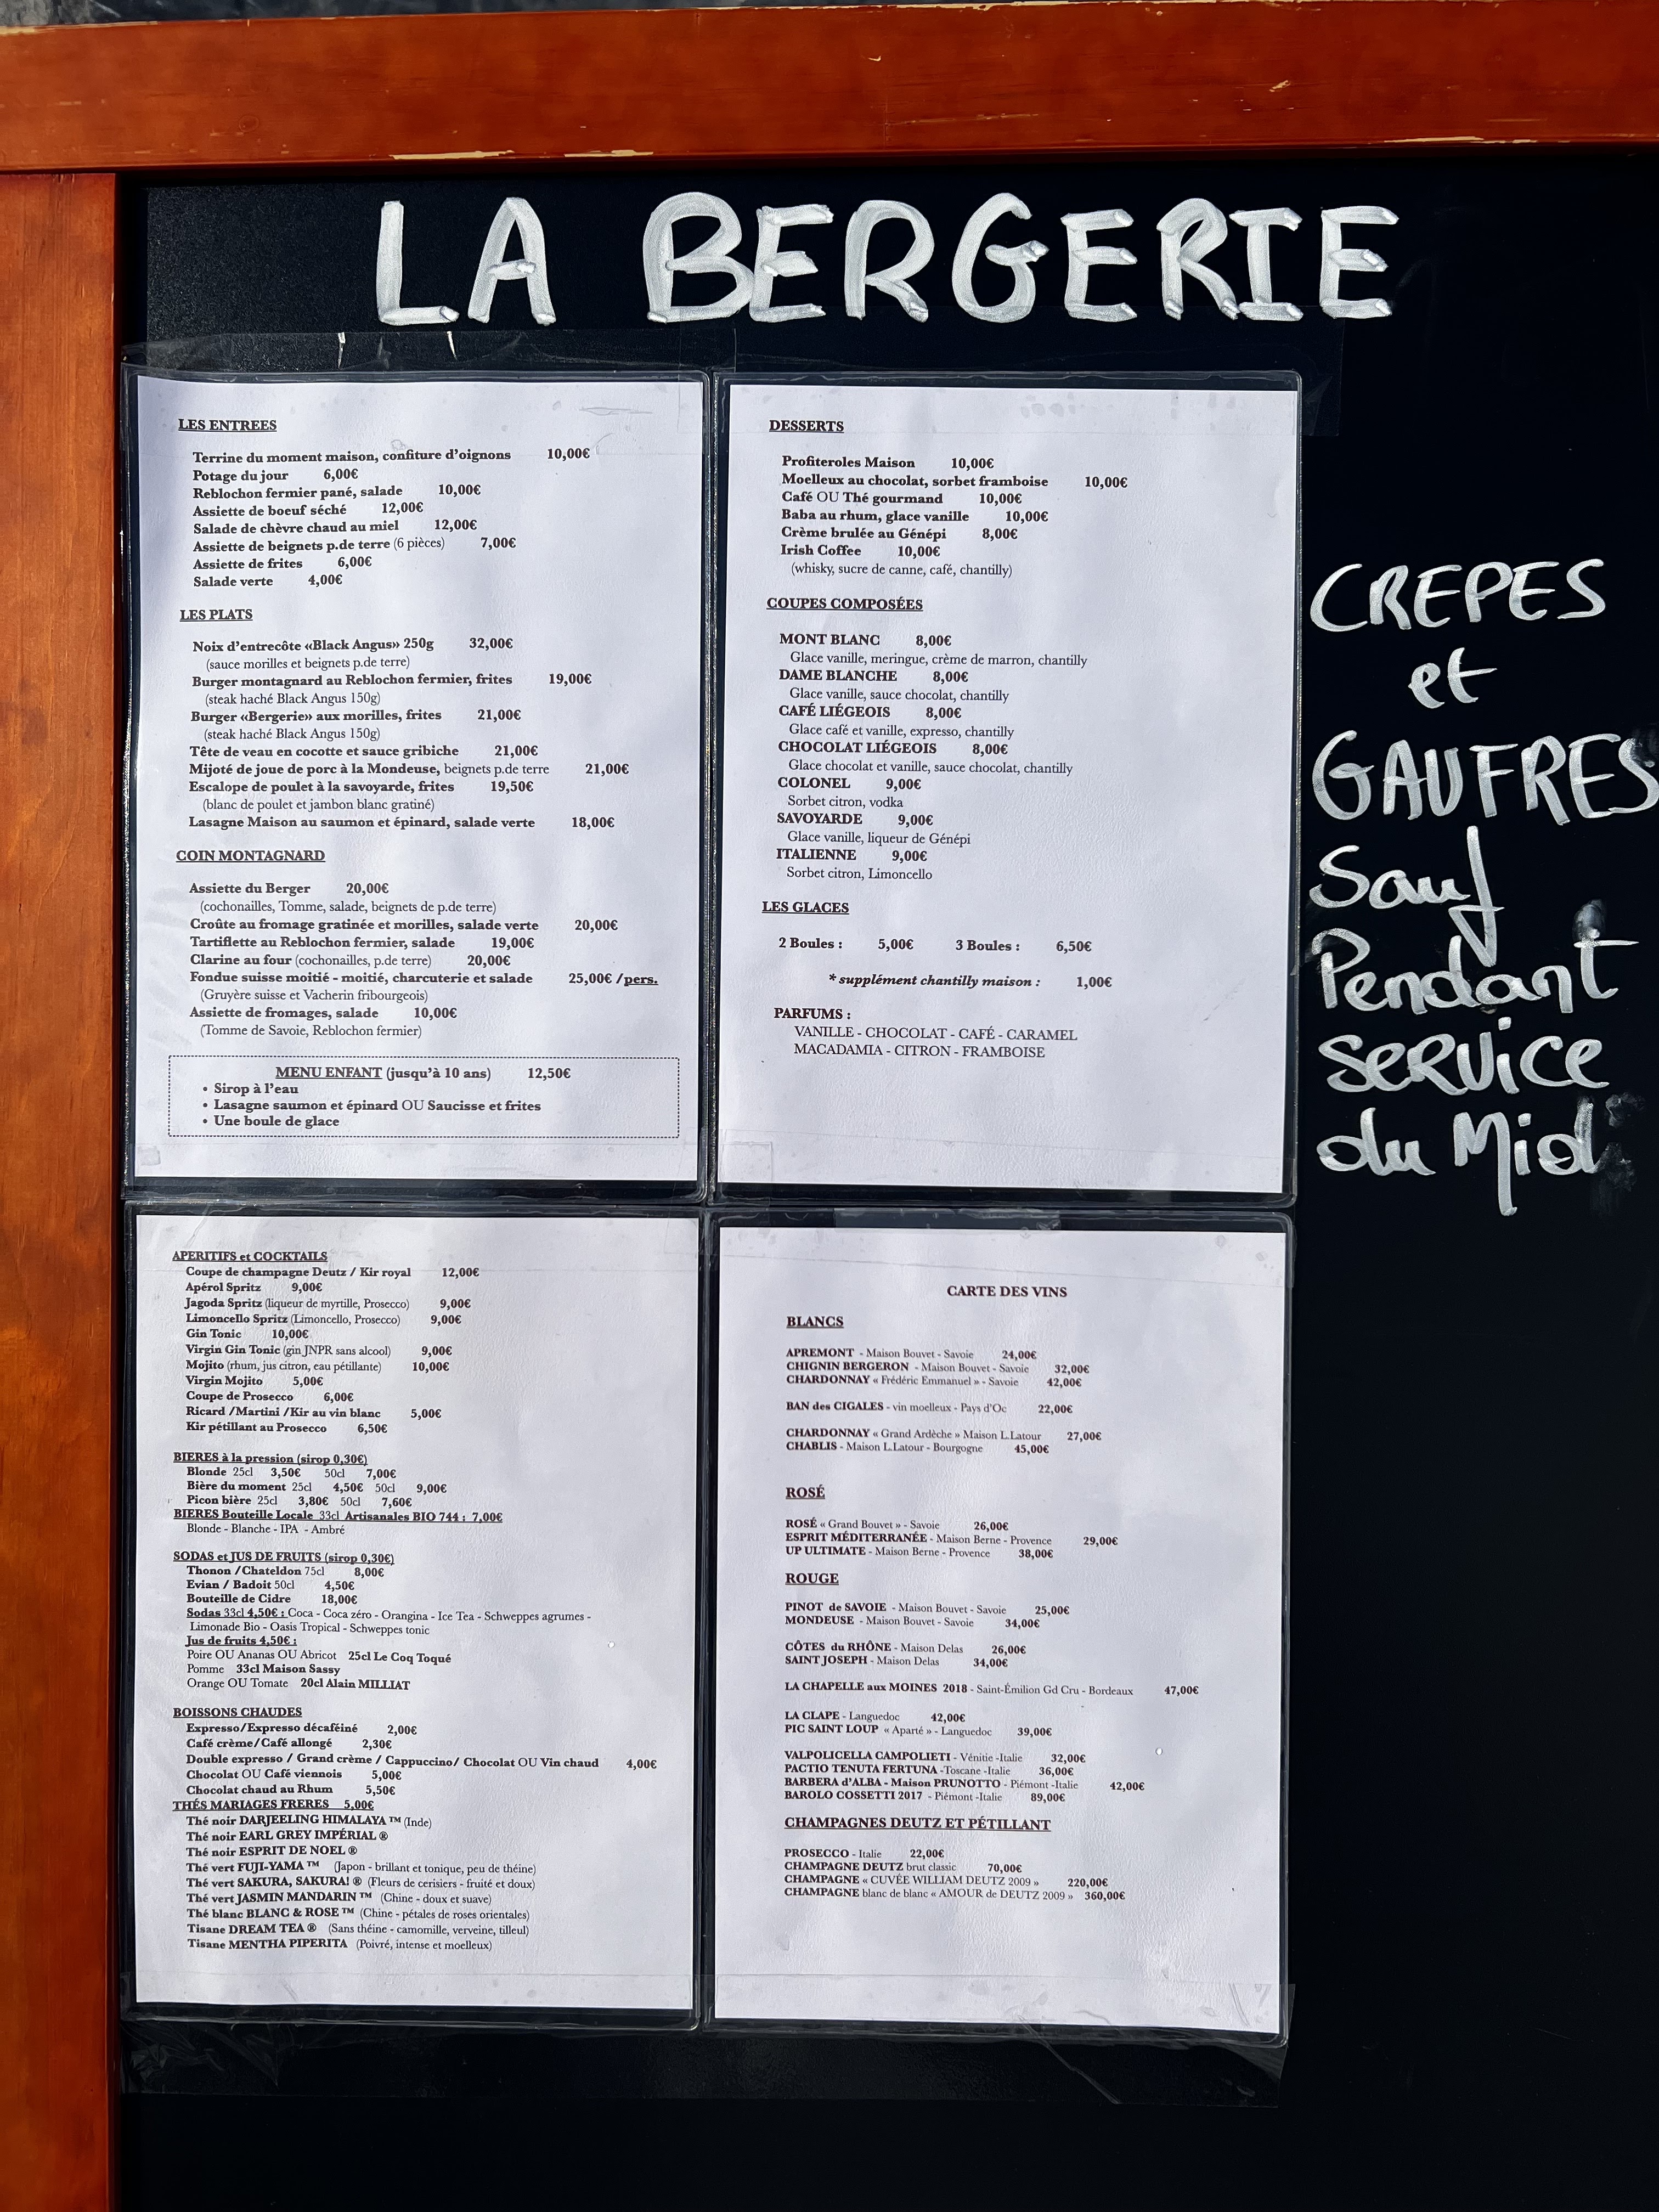 LA BERGERIE
LES ENTREES
Terrine du moment maison, confiture d'oignons 10,00€
Potage du jour 6,00€
Reblochon fermier pané, salade 10,00€
Assiette de boeuf séché 12,00€
Salade de chèvre chaud au miel 12,00€
Assiette de beignets p.de terre (6 pièces) 7,00€
Assiette de frites 6,00€
Salade verte 4,00€
LES PLATS
Noix d'entrecôte «Black Angus» 250g 32,00€
(sauce morilles et beignets p.de terre)
Burger montagnard au Reblochon fermier, frites 19,00€
(steak haché Black Angus 150g)
Burger «Bergerie» aux morilles, frites 21,00€
(steak haché Black Angus 150g)
Tête de veau en cocotte et sauce gribiche 21,00€
Mijoté de joue de porc à la Mondeuse, beignets p.de terre 21,00€
Escalope de poulet à la savoyarde, frites 19,50€
(blanc de poulet et jambon blanc gratiné)
Lasagne Maison au saumon et épinard, salade verte 18,00€
COIN MONTAGNARD
Assiette du Berger 20,00€
(cochonailles, Tomme, salade, beignets de p.de terre)
Croûte au fromage gratinée et morilles, salade verte 20,00€
Tartiflette au Reblochon fermier, salade 19,00€
Clarine au four (cochonailles, p.de terre) 20,00€
Fondue suisse moitié - moitié, charcuterie et salade 25,00€ /pers.
(Gruyère suisse et Vacherin fribourgeois)
Assiette de fromages, salade 10,00€
(Tomme de Savoie, Reblochon fermier)
MENU ENFANT (jusqu'à 10 ans) 12,50€
• Sirop à l'eau
• Lasagne saumon et épinard OU Saucisse et frites
• Une boule de glace
DESSERTS
Profiteroles Maison 10,00€
Moelleux au chocolat, sorbet framboise 10,00€
Café OU Thé gourmand 10,00€
Baba au rhum, glace vanille 10,00€
Crème brulée au Génépi 8,00€
Irish Coffee 10,00€
(whisky, sucre de canne, café, chantilly)
COUPES COMPOSÉES
MONT BLANC 8,00€
Glace vanille, meringue, crème de marron, chantilly
DAME BLANCHE 8,00€
Glace vanille, sauce chocolat, chantilly
CAFÉ LIÉGEOIS 8,00€
Glace café et vanille, expresso, chantilly
CHOCOLAT LIÉGEOIS 8,00€
Glace chocolat et vanille, sauce chocolat, chantilly
COLONEL 9,00€
Sorbet citron, vodka
SAVOYARDE 9,00€
Glace vanille, liqueur de Génépi
ITALIENNE 9,00€
Sorbet citron, Limoncello
LES GLACES
2 Boules : 5,00€ 3 Boules : 6,50€
* supplément chantilly maison : 1,00€
PARFUMS :
VANILLE - CHOCOLAT - CAFÉ - CARAMEL
MACADAMIA - CITRON - FRAMBOISE
CREPES
et
GAUFRES
Sauf
Pendant
SERVICE
du Midi
APERITIFS et COCKTAILS
Coupe de champagne Deutz / Kir royal 12,00€
Apérol Spritz 9,00€
Jagoda Spritz (liqueur de myrtille, Prosecco) 9,00€
Limoncello Spritz (Limoncello, Prosecco) 9,00€
Gin Tonic 10,00€
Virgin Gin Tonic (gin JNPR sans alcool) 9,00€
Mojito (rhum, jus citron, eau pétillante) 10,00€
Virgin Mojito 5,00€
Coupe de Prosecco 6,00€
Ricard /Martini /Kir au vin blanc 5,00€
Kir pétillant au Prosecco 6,50€
BIERES à la pression (sirop 0,30€)
Blonde 25cl 3,50€ 50cl 7,00€
Bière du moment 25cl 4,50€ 50cl 9,00€
Picon bière 25cl 3,80€ 50cl 7,60€
BIERES Bouteille Locale 33cl Artisanales BIO 744 : 7,00€
Blonde - Blanche - IPA - Ambré
SODAS et JUS DE FRUITS (sirop 0,30€)
Thonon /Chateldon 75cl 8,00€
Evian / Badoit 50cl 4,50€
Bouteille de Cidre 18,00€
Sodas 33cl 4,50€ : Coca - Coca zéro - Orangina - Ice Tea - Schweppes agrumes -
Limonade Bio - Oasis Tropical - Schweppes tonic
Jus de fruits 4,50€ :
Poire OU Ananas OU Abricot 25cl Le Coq Toqué
Pomme 33cl Maison Sassy
Orange OU Tomate 20cl Alain MILLIAT
BOISSONS CHAUDES
Expresso/Expresso décaféiné 2,00€
Café crème/Café allongé 2,30€
Double expresso / Grand crème / Cappuccino/ Chocolat OU Vin chaud 4,00€
Chocolat OU Café viennois 5,00€
Chocolat chaud au Rhum 5,50€
THÉS MARIAGES FRERES 5,00€
Thé noir DARJEELING HIMALAYA ™ (Inde)
Thé noir EARL GREY IMPÉRIAL ®
Thé noir ESPRIT DE NOEL ®
Thé vert FUJI-YAMA ™ (Japon - brillant et tonique, peu de théine)
Thé vert SAKURA, SAKURA! ® (Fleurs de cerisiers - fruité et doux)
Thé vert JASMIN MANDARIN ™ (Chine - doux et suave)
Thé blanc BLANC & ROSE ™ (Chine - pétales de roses orientales)
Tisane DREAM TEA ® (Sans théine - camomille, verveine, tilleul)
Tisane MENTHA PIPERITA (Poivré, intense et moelleux)
CARTE DES VINS
BLANCS
APREMONT - Maison Bouvet - Savoie 24,00€
CHIGNIN BERGERON - Maison Bouvet - Savoie 32,00€
CHARDONNAY « Frédéric Emmanuel » - Savoie 42,00€
BAN des CIGALES - vin moelleux - Pays d'Oc 22,00€
CHARDONNAY « Grand Ardèche » Maison L.Latour 27,00€
CHABLIS - Maison L.Latour - Bourgogne 45,00€
ROSÉ
ROSÉ « Grand Bouvet » - Savoie 26,00€
ESPRIT MÉDITERRANÉE - Maison Berne - Provence 29,00€
UP ULTIMATE - Maison Berne - Provence 38,00€
ROUGE
PINOT de SAVOIE - Maison Bouvet - Savoie 25,00€
MONDEUSE - Maison Bouvet - Savoie 34,00€
CÔTES du RHÔNE - Maison Delas 26,00€
SAINT JOSEPH - Maison Delas 34,00€
LA CHAPELLE aux MOINES 2018 - Saint-Émilion Gd Cru - Bordeaux 47,00€
LA CLAPE - Languedoc 42,00€
PIC SAINT LOUP « Aparté » - Languedoc 39,00€
VALPOLICELLA CAMPOLIETI - Vénitie -Italie 32,00€
PACTIO TENUTA FERTUNA -Toscane -Italie 36,00€
BARBERA d'ALBA - Maison PRUNOTTO - Piémont -Italie 42,00€
BAROLO COSSETTI 2017 - Piémont -Italie 89,00€
CHAMPAGNES DEUTZ ET PÉTILLANT
PROSECCO - Italie 22,00€
CHAMPAGNE DEUTZ brut classic 70,00€
CHAMPAGNE « CUVÉE WILLIAM DEUTZ 2009 » 220,00€
CHAMPAGNE blanc de blanc « AMOUR de DEUTZ 2009 » 360,00€